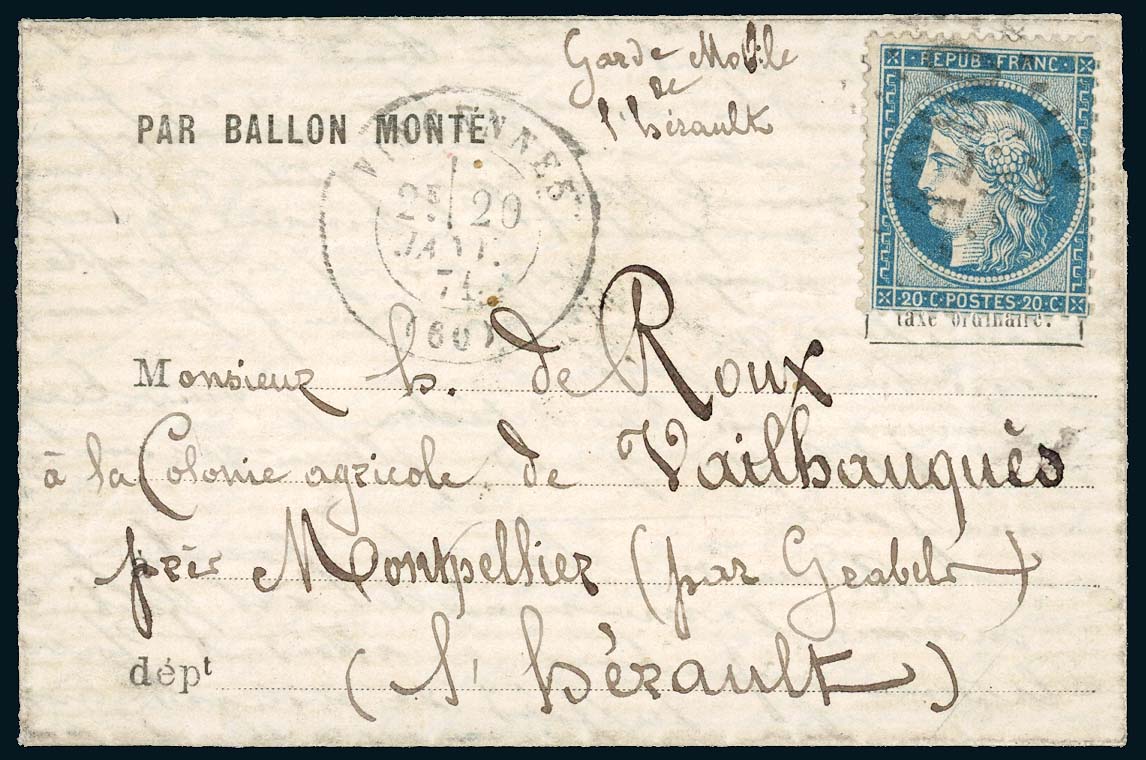 Garde Mobile
de
l'hérault
PAR BALLON MONTÉ
VINCENNES
2E 20
JANV.
71
(60)
REPUB. FRANC.
20·C·POSTES·20·C
taxe ordinaire.
Monsieur h. de Roux
à la Colonie agricole de Vailhauquès
près Montpellier (par Grabels)
dépt (l'hérault)